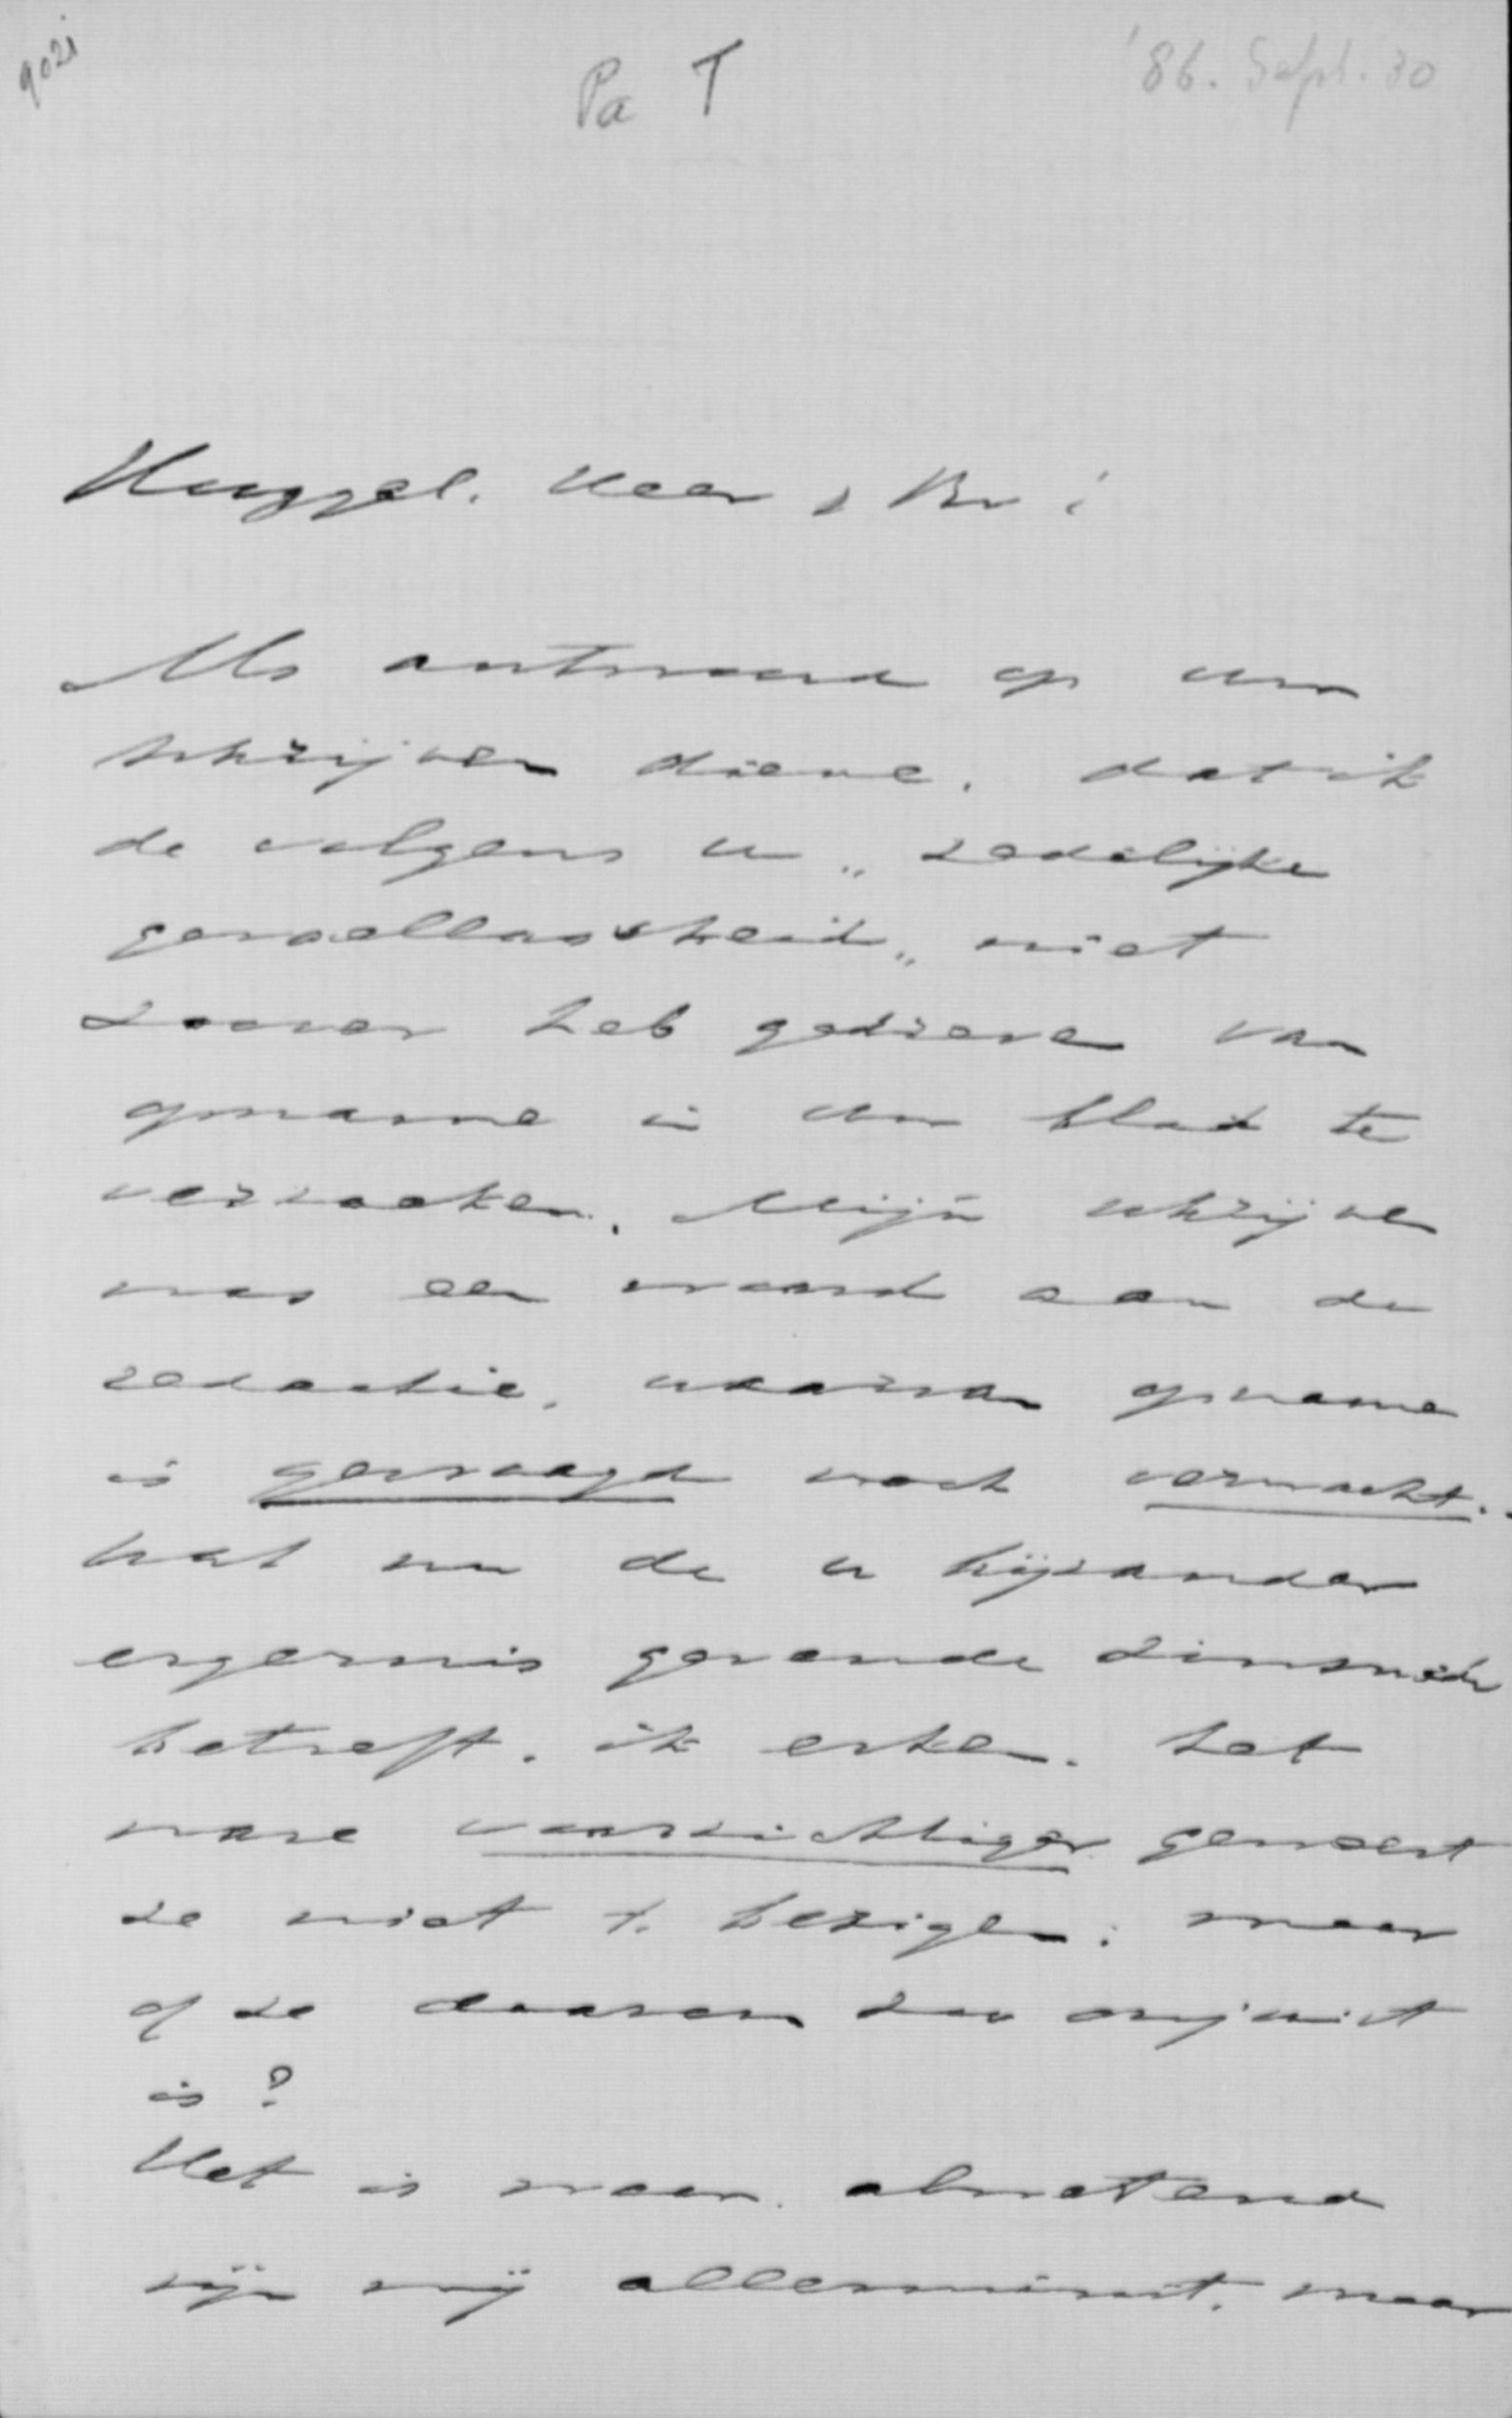 9021
Pa T
'86. Sept. 30
Hooggel. Heer & Br!
Als antwoord op uw
schrijven diene, dat ik
de volgens u „zedelijke
gevoelloosheid„ niet
zoover heb gedreven van
opname in uw blad te
verzoeken. Mijn schrijven
was een woord aan de
redactie, waarvan opname
is gevraagd noch verwacht.
Wat nu de u bijzonder
ergernis gevende zinsnede
betreft, ik erken, het
ware voorzichtiger geweest
ze niet te bezigen; maar
of ze daarom zoo onjuist
is?
Het is waar, alwetend
zijn wij allerminst, maar